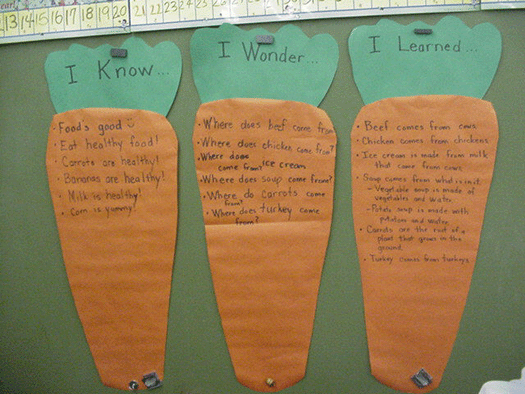 14 15 16 17 18 19 20 21 22 23 24 25 26 27 28 29 30 31
I Know...
• Food's good
• Eat healthy food!
• Carrots are healthy!
• Bananas are healthy!
• Milk is healthy!
• Corn is yummy!
I Wonder...
• Where does beef come from
• Where does chicken come from?
• Where does
come from? ice cream
• Where does soup come from?
• Where do carrots come
from?
• Where does turkey come
from?
I Learned...
• Beef comes from cows
• Chicken comes from chickens
• Ice cream is made from milk
that come from cows
• Soup comes from what is in it.
- Vegetable soup is made of
vegetables and water
- Potato soup is made with
potatoes and water
• Carrots are the root of a
plant that grows in the
ground.
• Turkey comes from turkeys